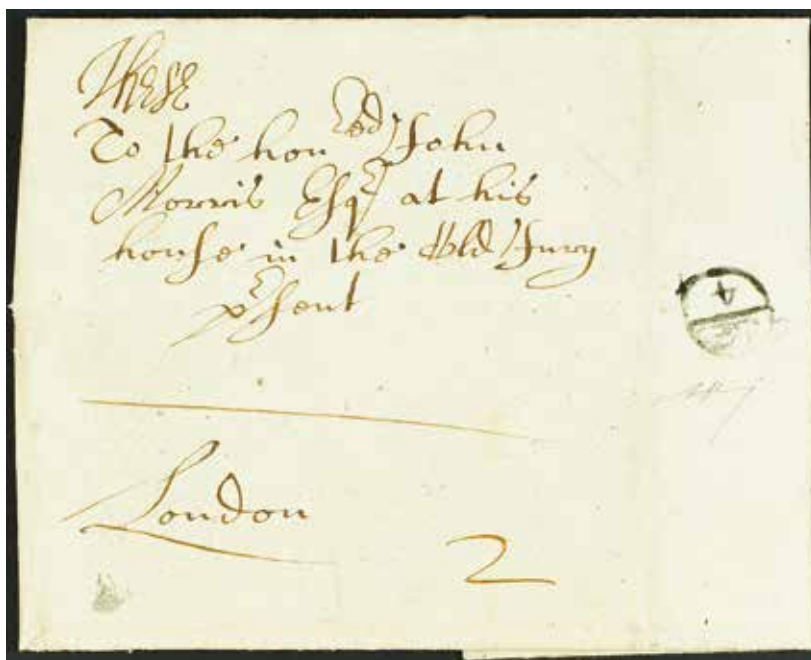 These
To the hon^red John
Morris Esq^r at his
house in the Old Jury
p^rsent
London
2
4